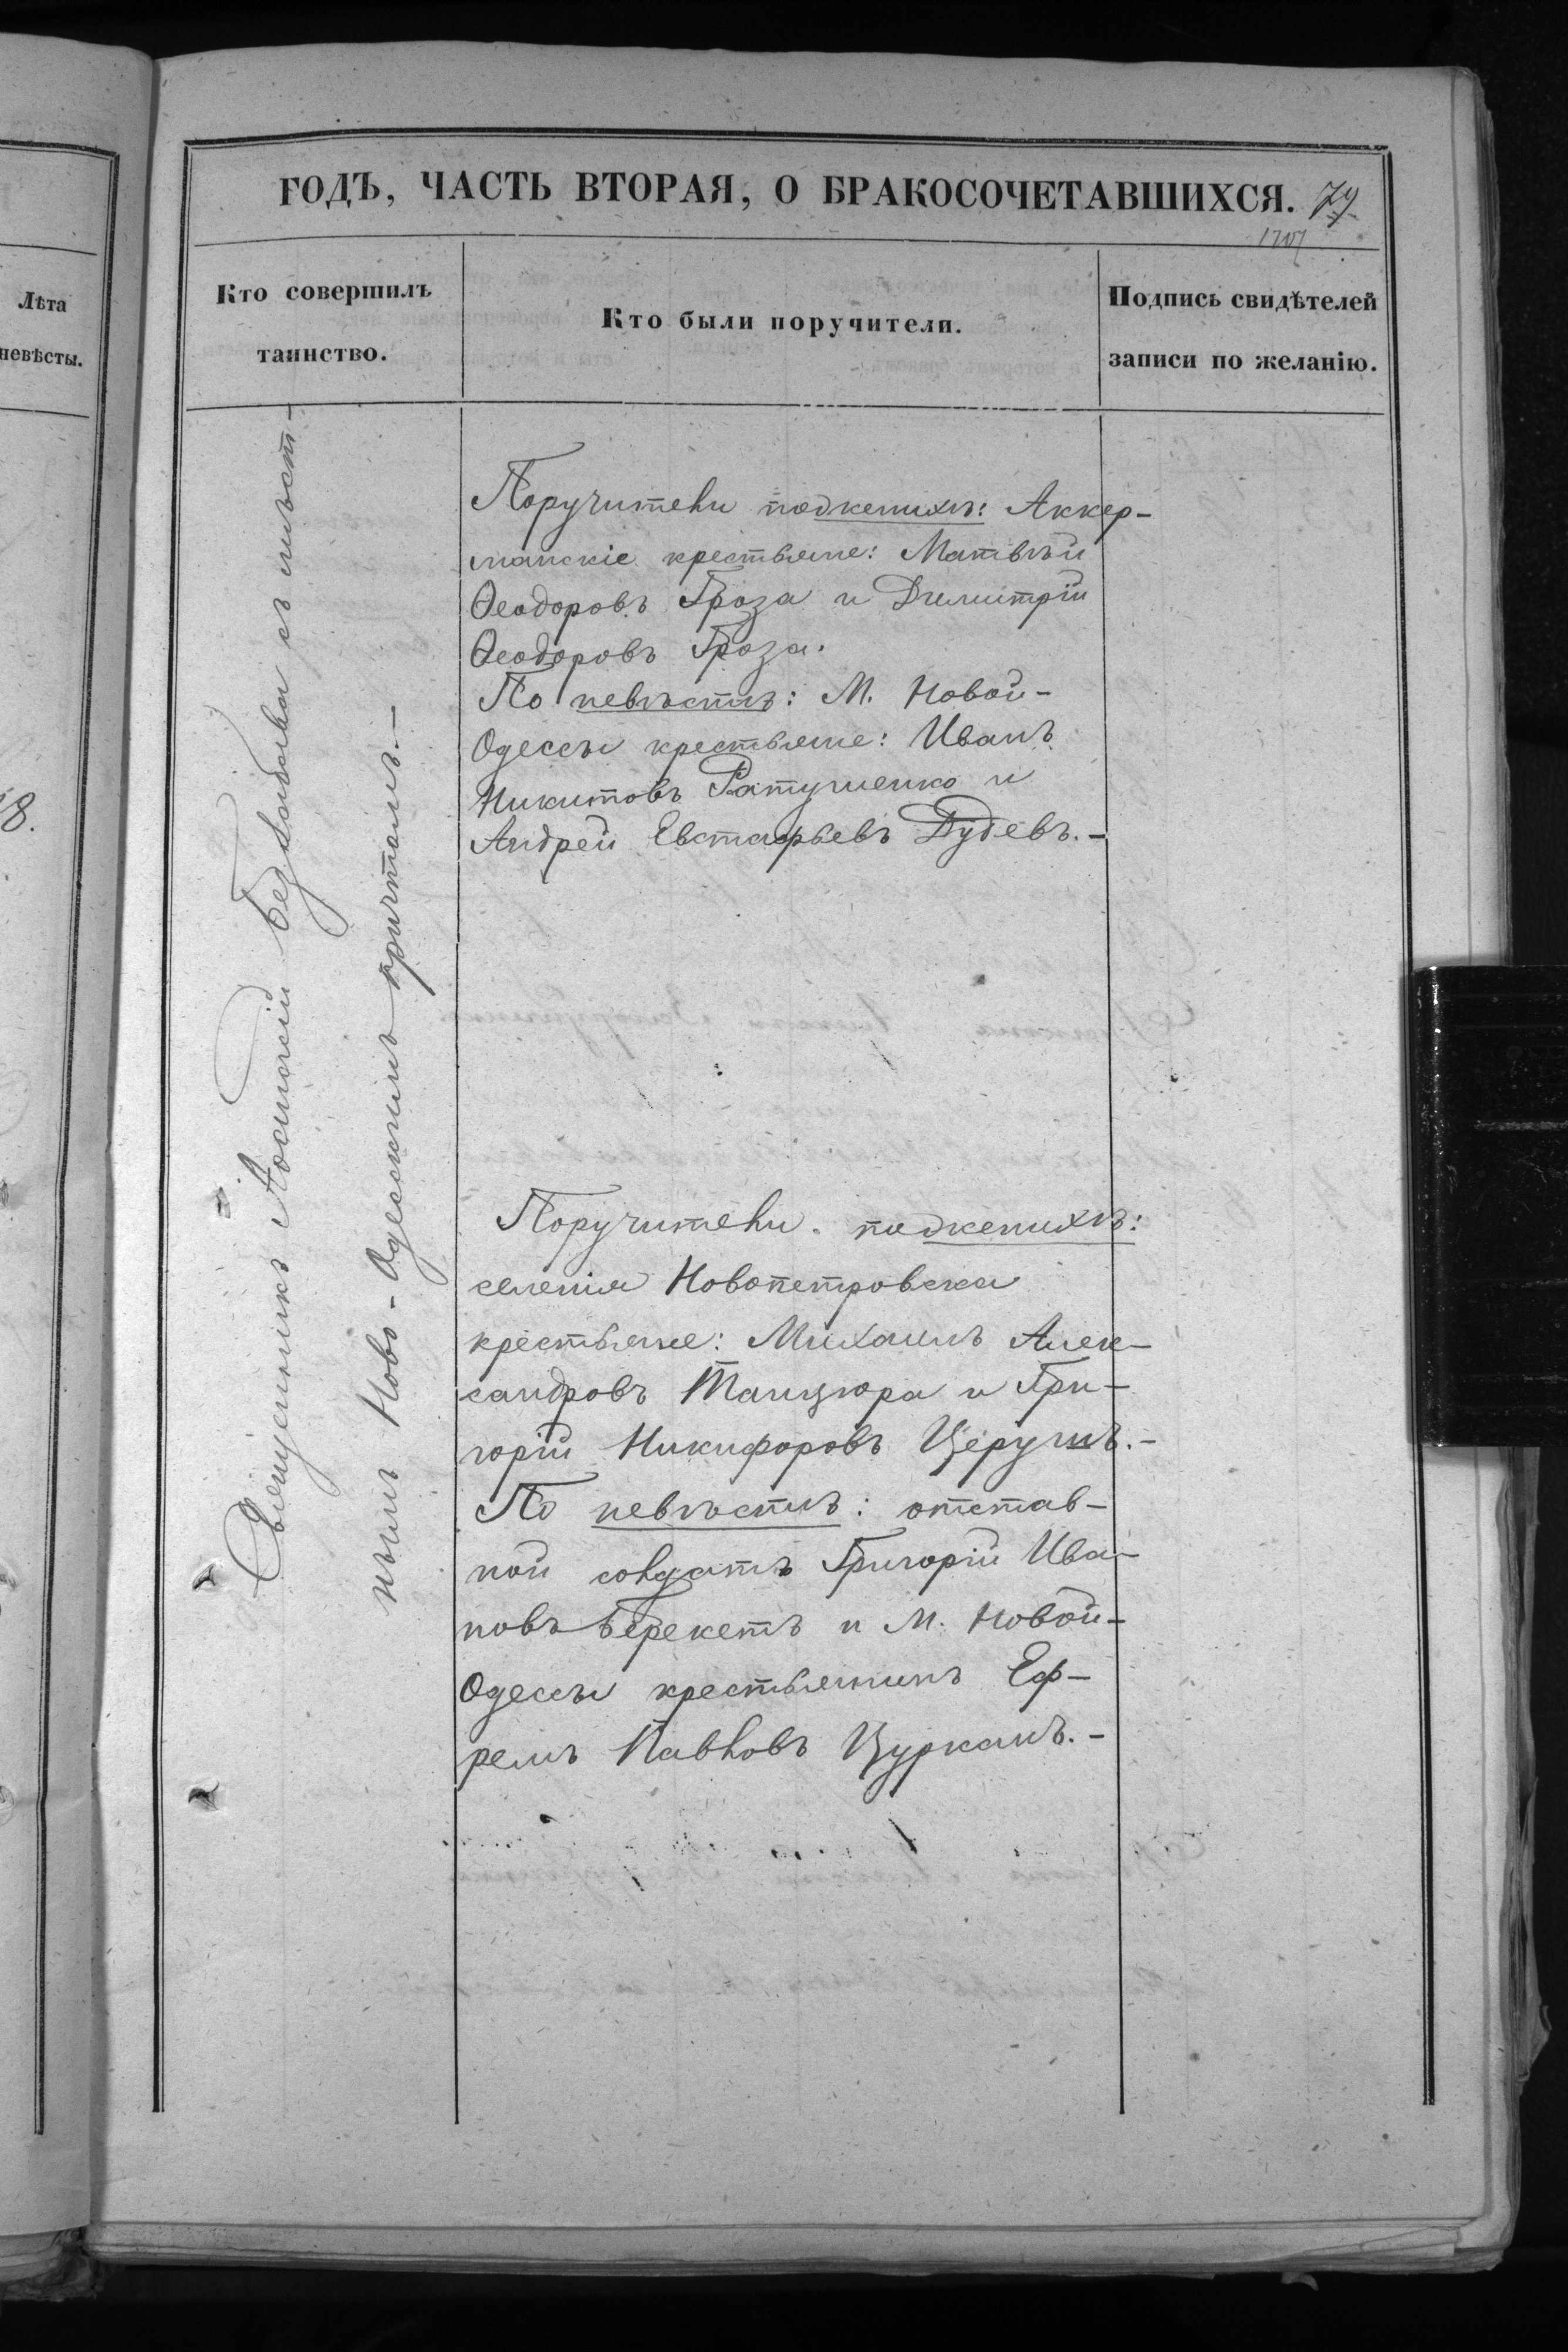 ГОДЪ, ЧАСТЬ ВТОРАЯ, О БРАКОСОЧЕТАВШИХСЯ. 79
Лѣта
невѣсты.
8.
Кто совершилъ
таинство.
Кто были поручители.
Подпись свидѣтелей
записи по желанію.
Священникъ с мѣст-
нымъ Ново-Одесскимъ причтомъ.-
Поручители по женихѣ: Аккер-
манскіе крестьяне: Матвѣй
Ѳеодоровъ Гроза и Димитрій
Ѳеодоровъ Гроза.
По невѣстѣ: М. Новой-
Одессы крестьяне: Иванъ
Никитовъ Ратушенко и
Андрей Евстафьевъ Дудевъ.-
Поручители по женихѣ:
селенія Новопетровска
крестьяне: Михаилъ Алек-
сандровъ Танцюра и Гри-
горій Никифоровъ Церушъ.-
По невѣстѣ: отстав-
ной солдатъ Григорій Ива-
новъ Берекетъ и М. Новой-
Одессы крестьянинъ Еф-
ремъ Павловъ Цурканъ.-